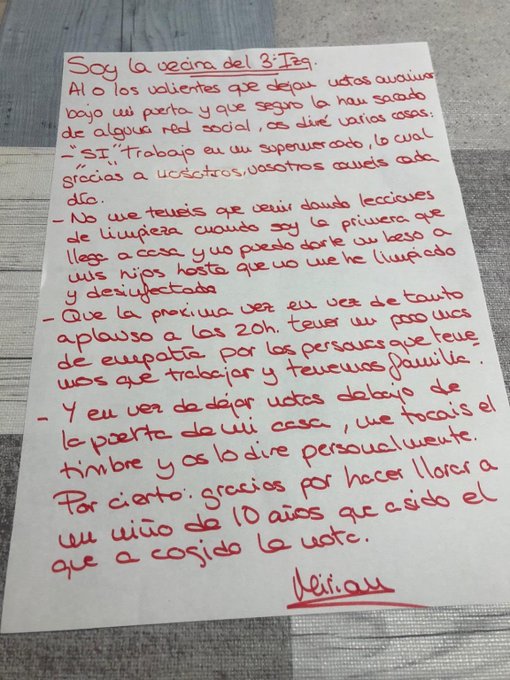 Soy la vecina del 3º Izq.
Al o los valientes que dejan notas anonimas
bajo mi puerta y que seguro la han sacado
de alguna red social, os diré varias cosas:
-"SI" Trabajo en un supermercado, lo cual
gracias a "nosotros", vosotros comeis cada
día.
- No me teneis que venir dando lecciones
de limpieza cuando soy la primera que
llega a casa y no puedo darle un beso a
mis hijos hasta que no me he limpiado
y desinfectado
- Que la proxima vez en vez de tanto
aplauso a las 20h. tener un poco mas
de empatía por las personas que tene
mos que trabajar y tenemos familia.
- Y en vez de dejar notas debajo de
la puerta de mi casa, me tocais el
timbre y os lo dire personalmente.
Por cierto: gracias por hacer llorar a
un niño de 10 años que a sido el
que a cogido la nota.
Mirian